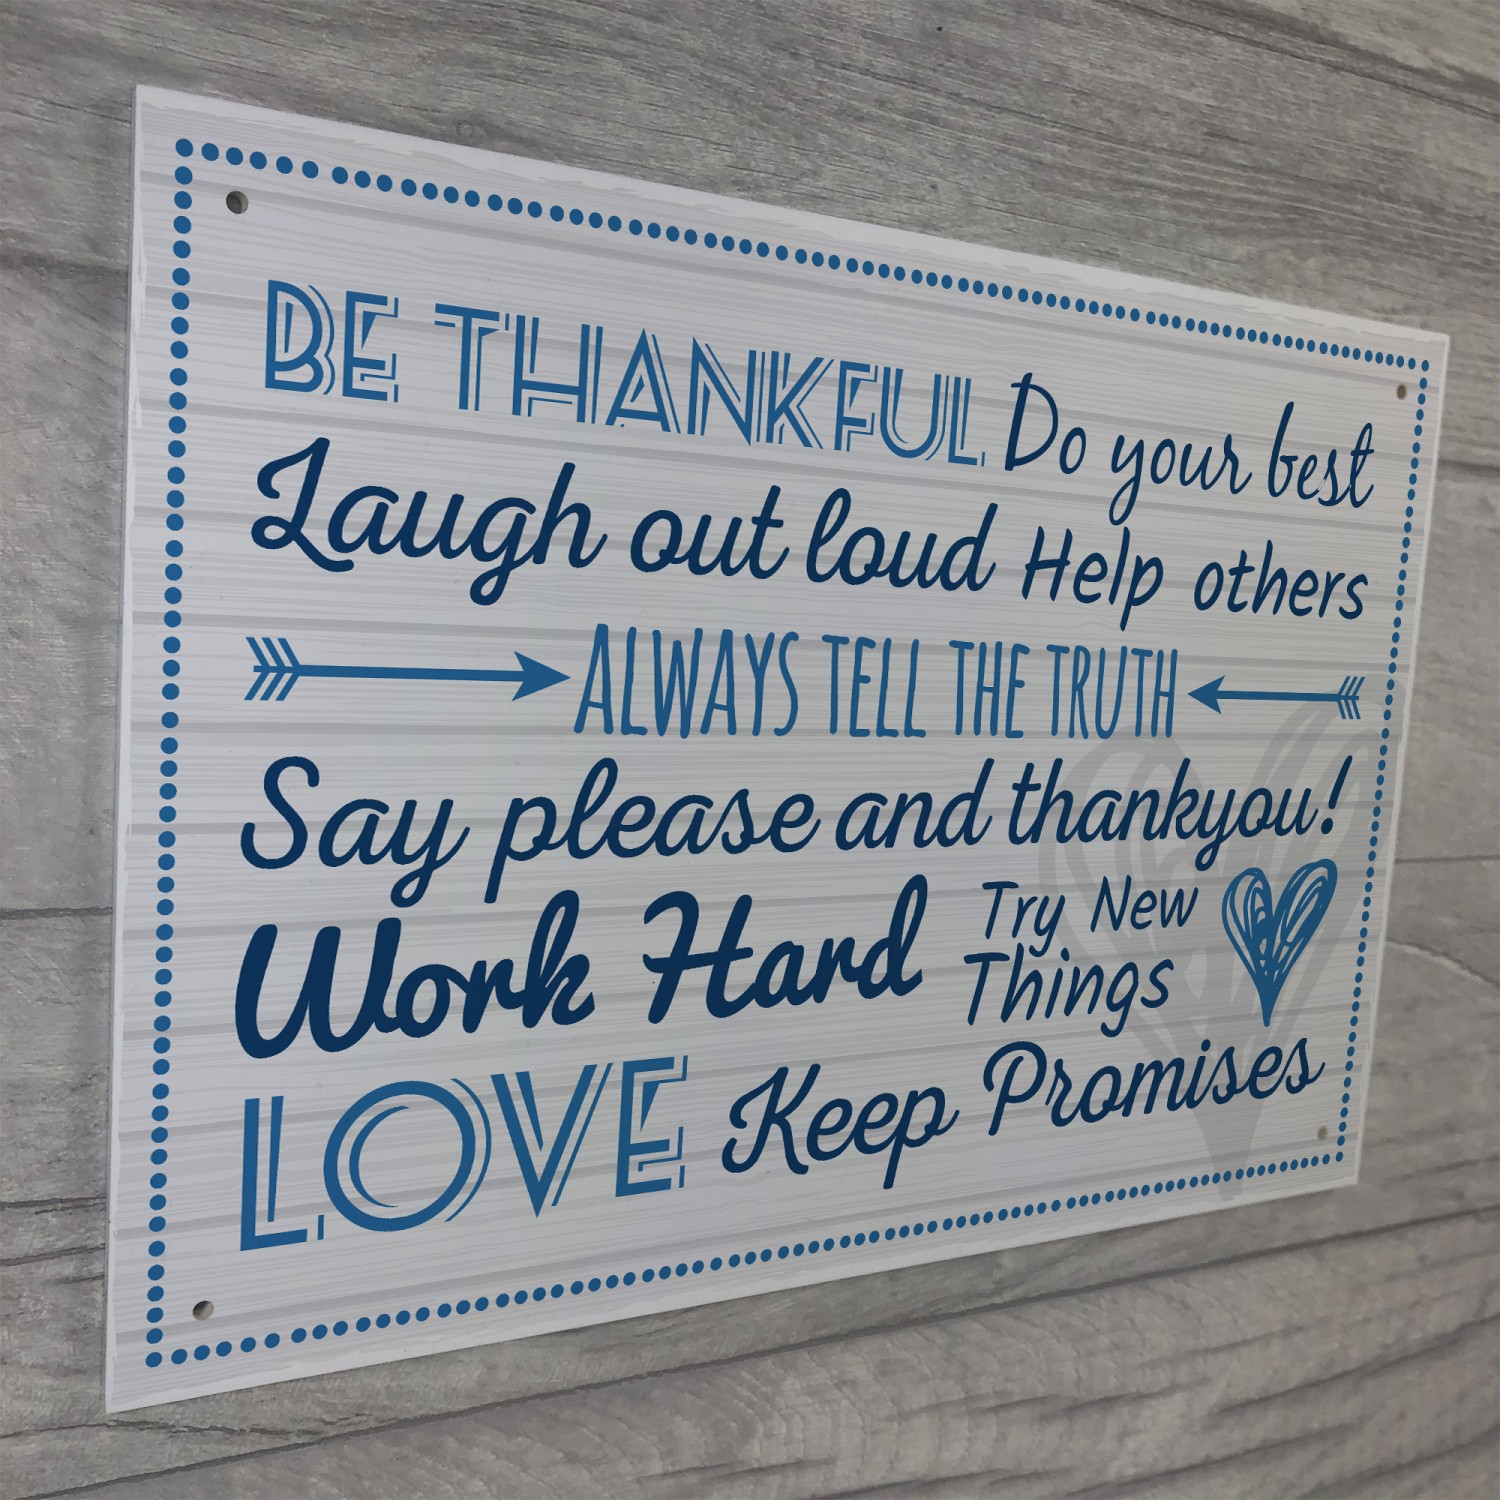 BE THANKFUL Do your best
Laugh out loud Help others
ALWAYS TELL THE TRUTH
Say please and thankyou!
Work Hard Try New Things
LOVE Keep Promises